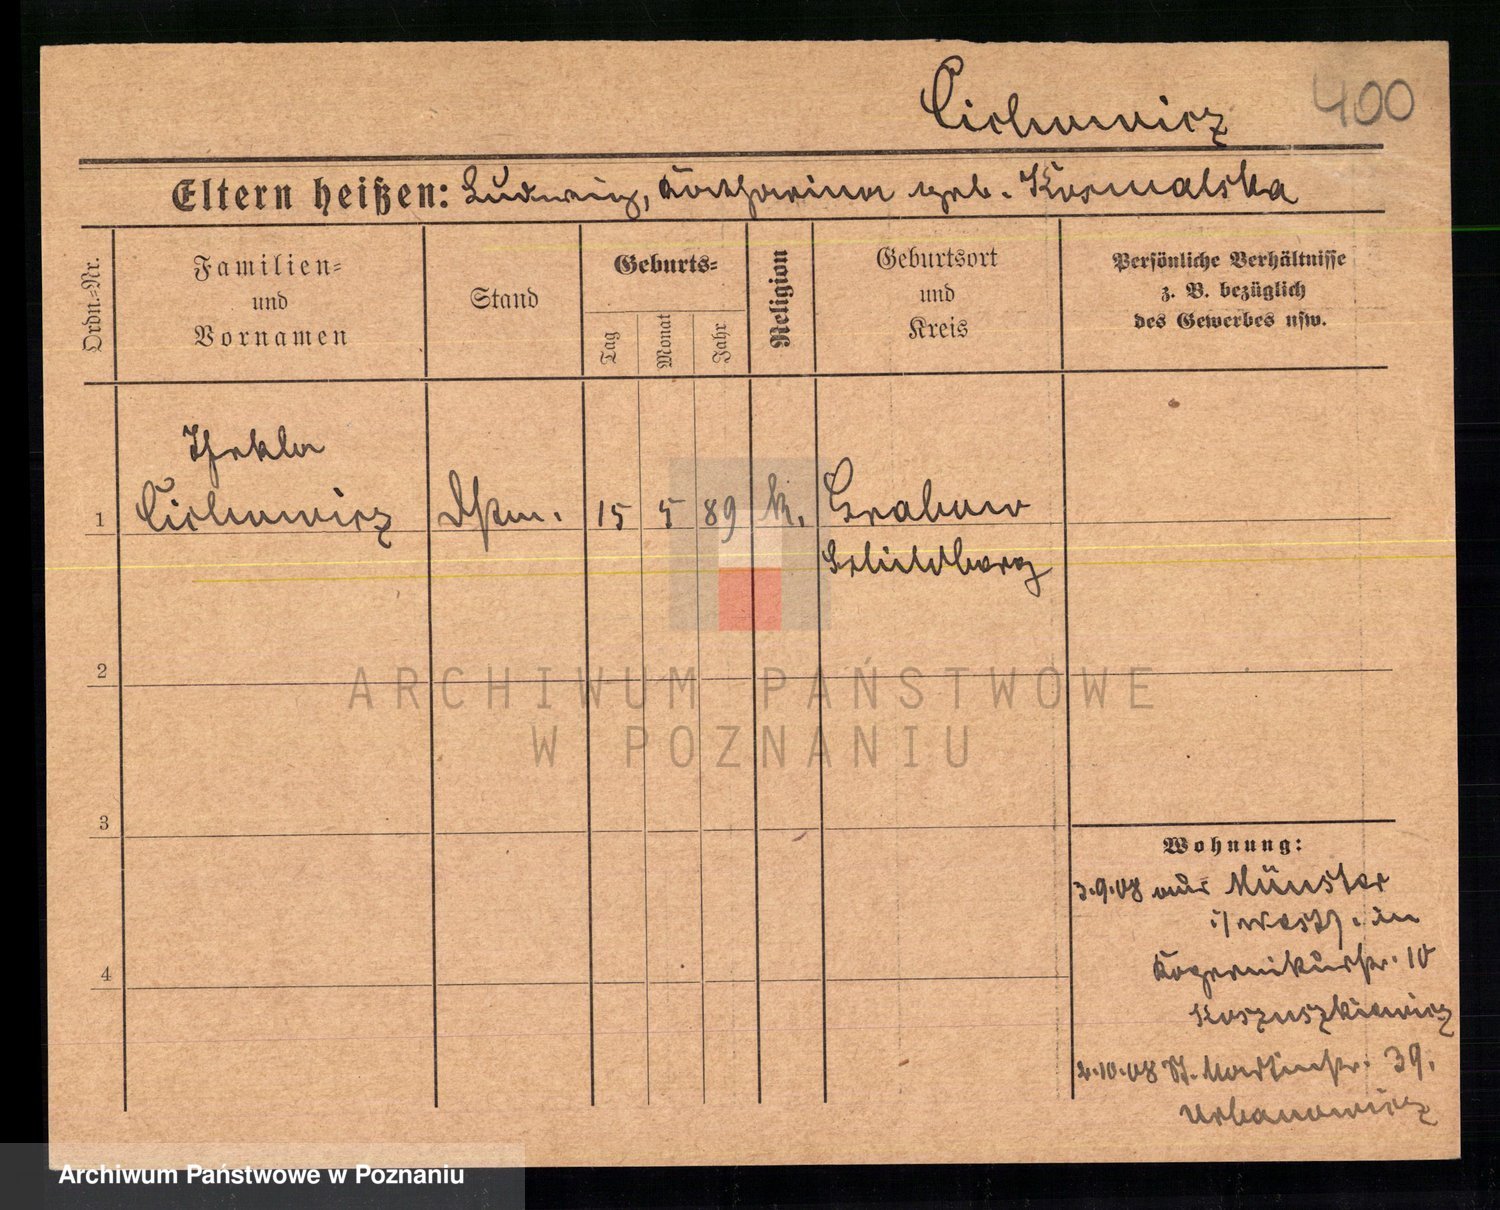 Cichowicz
400
Eltern heißen: Ludwig, Katharina geb. Kosmalska
Ordn.=Nr.
Familien=
und
Vornamen
Stand
Geburts=
Tag
Monat
Jahr
Religion
Geburtsort
und
Kreis
Persönliche Verhältnisse
z. B. bezüglich
des Gewerbes usw.
Thekla
1 Cichowicz Dstm. 15 5 89 k. Grabow
Schildberg
2
ARCHIWUM PAŃSTWOWE
W POZNANIU
3
Wohnung:
3.9.08 aus Münster
i/Westf. in
Kopernikusstr. 10
Koszuszkiewicz
4
2.10.08 St. Martinstr. 39.
Urbanowicz
Archiwum Państwowe w Poznaniu